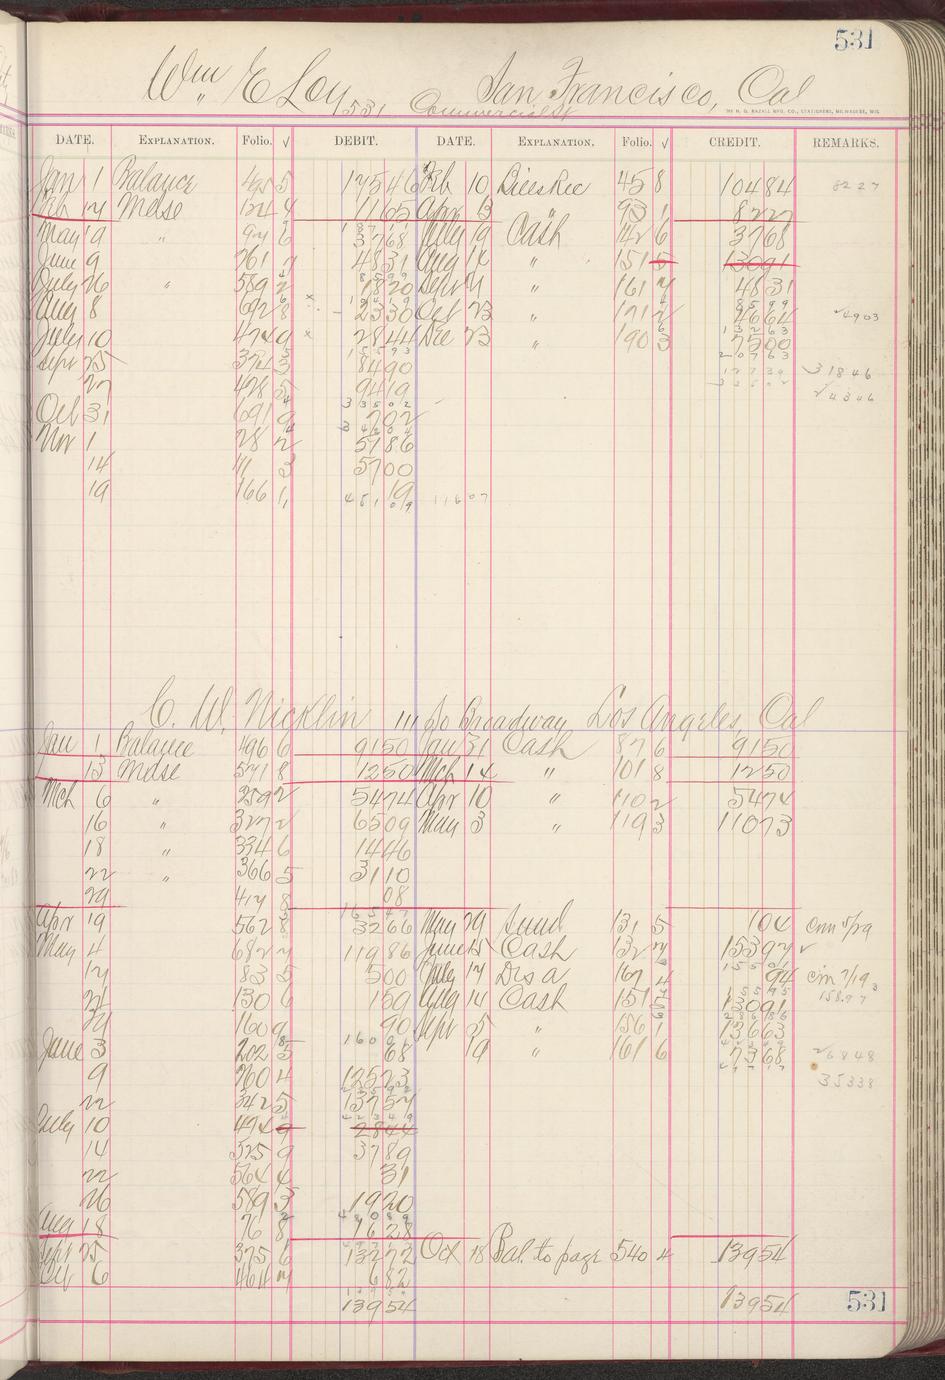 531
Wm E Loy San Francisco, Cal
531 Commercial St
DATE. EXPLANATION. Folio. √ DEBIT. DATE. EXPLANATION. Folio. √ CREDIT. REMARKS.
Jan 1 Balance 5 17546 Feb 10 458 10484 8227
Feb 17 Mdse 124 4 1165 Apr 13 " 93 1 8227
May 9 " 94 6 3768 July 19 Cash 142 6 3768
June 9 761 7 4831 Aug 14 " 151 5 13091
July 26 " 589 2 1820 Sept 19 " 161 7 4831
Aug 8 692 8 2330 Oct 23 " 171 2 4664
July 10 474 9 × 2844 Dec 23 " 190 3 7500
Sept 25 374 3 8490 31846
27 428 5 9419 √4346
Oct 31 691 9 702
Nov 1 28 2 5786
14 111 3 5700
19 166 1 19 11607
C. W. Nicklin 111 So Broadway Los Angeles, Cal
Jan 1 Balance 496 6 9150 Jan 31 Cash 87 6 9150
13 Mdse 571 8 1250 Mch 14 " 101 8 1250
Mch 6 " 259 2 5474 Apr 10 " 110 2 5474
16 " 327 2 6509 May 3 " 119 3 11073
18 " 334 6 1446
22 " 366 5 3110
29 417 8 08
Apr 19 562 8 3266 May 29 Sund 131 5 104 5/29
May 4 682 7 11986 June 15 Cash 132 7 15397 √
17 83 5 500 July 17 Dis a 167 4 94 7/19
21 130 6 150 Aug 14 Cash 151 5 13091 158.97
29 160 9 90 Sept 5 " 156 1 13663
June 3 202 5 68 19 " 161 6 7368 √6848
9 260 4 12523 35338
22 342 5 13757
July 10 474 9 2844
14 525 9 3789
22 564 4 31
26 589 3 1920
Aug 18 76 8 7628
Sept 25 375 6 13272 Oct 18 Bal. to page 540 4 13954
Oct 6 464 7 682
13954 13954 531